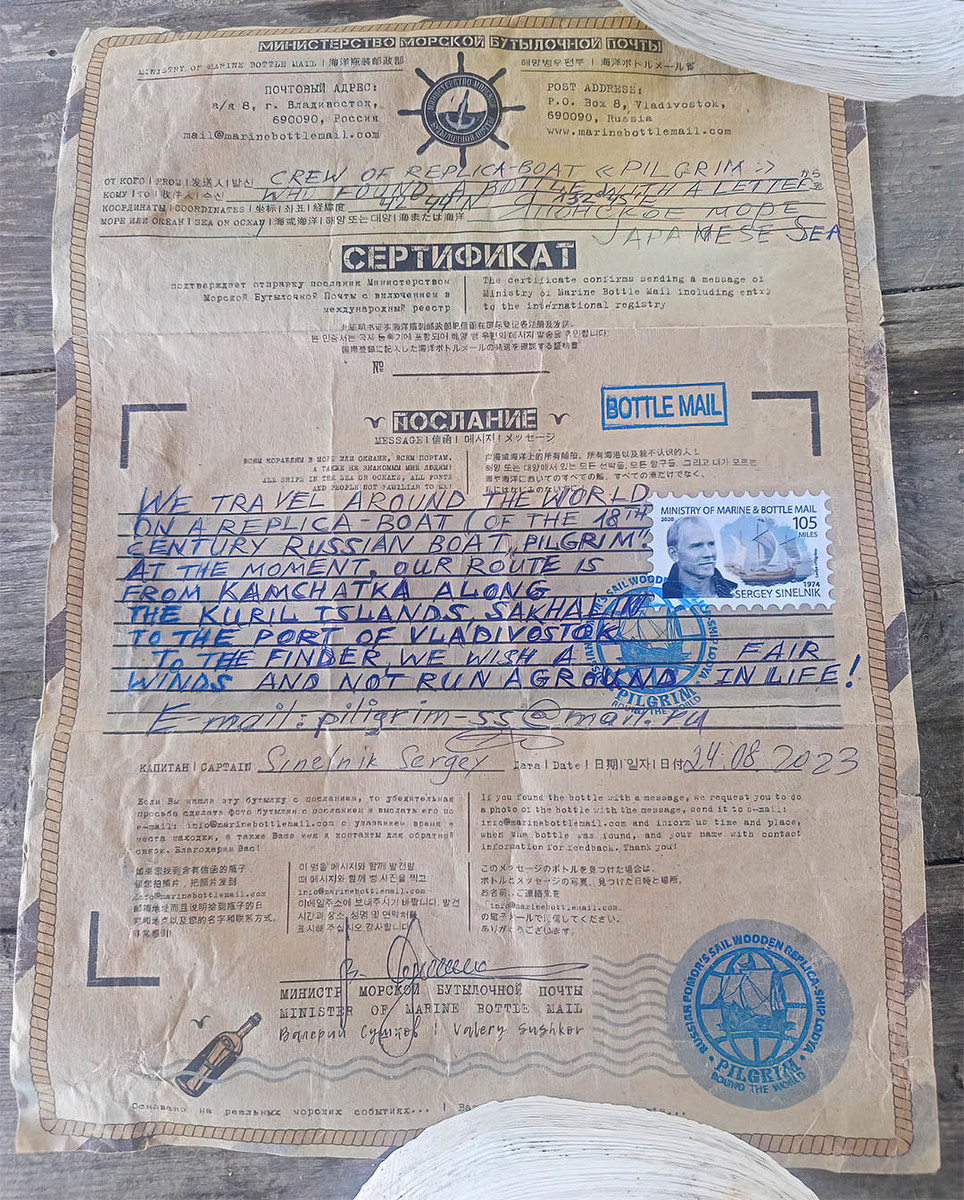 МИНИСТЕРСТВО МОРСКОЙ БУТЫЛОЧНОЙ ПОЧТЫ
MINISTRY OF MARINE BOTTLE MAIL | 海洋瓶装邮政部
해양병우편부 | 海洋ボトルメール省
ПОЧТОВЫЙ АДРЕС:
а/я 8, г. Владивосток,
690090, Россия
mail@marinebottlemail.com
POST ADDRESS:
P.O. Box 8, Vladivostok,
690090, Russia
www.marinebottlemail.com
ОТ КОГО | FROM | 发送人 | 발신 CREW OF REPLICA-BOAT «PILGRIM» から
КОМУ | TO | 收件人 | 수신 WHO FOUND A BOTTLE WITH A LETTER
КООРДИНАТЫ | COORDINATES | 坐标 | 좌표 | 経緯度 42°44'N 132°45'E
МОРЕ ИЛИ ОКЕАН | SEA OR OCEAN | 海或海洋 | 해양 또는 대양 | 海または海洋 ЯПОНСКОЕ МОРЕ
JAPANESE SEA
СЕРТИФИКАТ
подтверждает отправку послания Министерством
Морской Бутылочной Почты с включением в
международный реестр
The certificate confirms sending a message of
Ministry of Marine Bottle Mail including entry
to the international registry
国際登録に記入した海洋ボトルメールの発送を確認する証明書
№
ПОСЛАНИЕ
MESSAGE | 信函 | 메시지 | メッセージ
BOTTLE MAIL
ВСЕМ КОРАБЛЯМ В МОРЕ ИЛИ ОКЕАНЕ, ВСЕМ ПОРТАМ,
А ТАКЖЕ НЕ ЗНАКОМЫМ МНЕ ЛЮДЯМ!
ALL SHIPS IN THE SEA OR OCEANS, ALL PORTS
AND PEOPLE NOT FAMILIAR TO ME!
WE TRAVEL AROUND THE WORLD
ON A REPLICA-BOAT (OF THE 18TH
CENTURY RUSSIAN BOAT „PILGRIM".
AT THE MOMENT, OUR ROUTE IS
FROM KAMCHATKA ALONG
THE KURIL ISLANDS, SAKHALIN
TO THE PORT OF VLADIVOSTOK
TO THE FINDER, WE WISH A FAIR
WINDS AND NOT RUN AGROUND IN LIFE!
E-mail: piligrim-ss@mail.ru
MINISTRY OF MARINE & BOTTLE MAIL
2020
105
MILES
1974
SERGEY SINELNIK
PILGRIM
ROUND THE WORLD
КАПИТАН | CAPTAIN Sinelnik Sergey Дата | Date | 日期 | 일자 | 日付 24.08 2023
Если Вы нашли эту бутылку с посланием, то убедительная
просьба сделать фото бутылки с посланием и выслать его по
e-mail: info@marinebottlemail.com с указанием время и
места находки, а также Ваше имя и контакты для обратной
связи. Благодарим Вас!
If you found the bottle with a message, we request you to do
a photo of the bottle with the message, send it to e-mail:
info@marinebottlemail.com and inform us time and place,
when the bottle was found, and your name with contact
information for feedback. Thank you!
如果您找到含有信函的瓶子
请您拍照片，把照片发到
info@marinebottlemail.com
邮箱地址而且说明拾到瓶子的日
非常感谢!
이 병을 메시지와 함께 발견할
때 메시지와 함께 병 사진을 찍고
info@marinebottlemail.com
이메일주소에 보내주시기 바랍니다. 발견
시간과 장소, 성명 및 연락처를
표시해 주십시오 감사합니다
このメッセージのボトルを見つけた場合は、
ボトルとメッセージの写真、見つけた日時と場所、
お名前、ご連絡先を
info@marinebottlemail.com
の電子メールに送信してください。
ありがとうございます。
МИНИСТР МОРСКОЙ БУТЫЛОЧНОЙ ПОЧТЫ
MINISTER OF MARINE BOTTLE MAIL
Валерий Сушков | Valery Sushkov
RUSSIAN POMOR'S SAIL WOODEN REPLICA-SHIP LODYA
PILGRIM
ROUND THE WORLD
Основано на реальных морских событиях... |